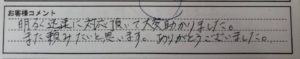 お客様コメント
明るく迅速に対応頂いて大変助かりました。
また頼みたいと思います。ありがとうございました。